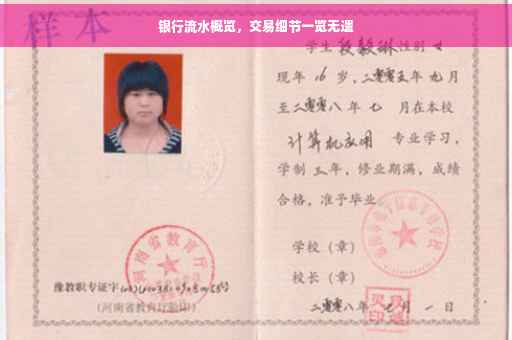 银行流水概览，交易细节一览无遗
样本
学生 段毅琳 性别 女
现年 16 岁，二零零五年 九月
至二零零八年 七 月在本校
计算机应用 专业学习，
学制 三年，修业期满，成绩
合格，准予毕业。
学校（章）
校长（章）
二零零八年 七月 一日
河南省教育厅
豫教职专证字
（河南省教育厅验印）